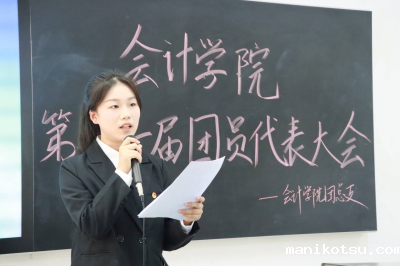 会计学院
第一届团员代表大会
—会计学院团总支
manikotsu.com